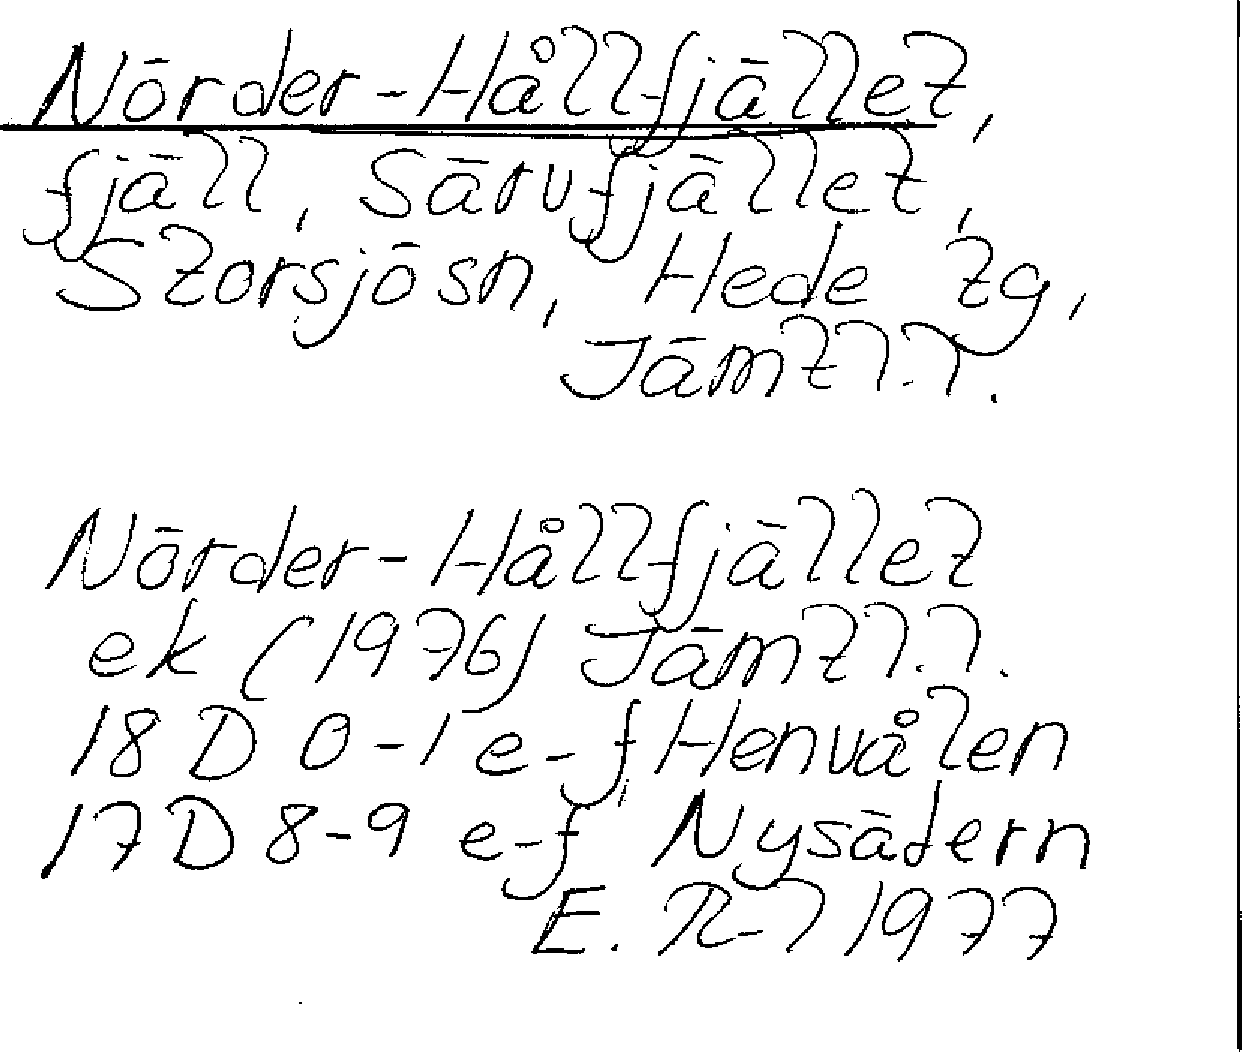 Nörder-Hållfjället,
fjäll, Särvfjället,
Storsjösn, Hede tg,
Jämtl.l.
Nörder-Hållfjället
ek (1976) Jämtl.l.
18 D 0-1 e-f Henvålen
17 D 8-9 e-f Nysätern
1977